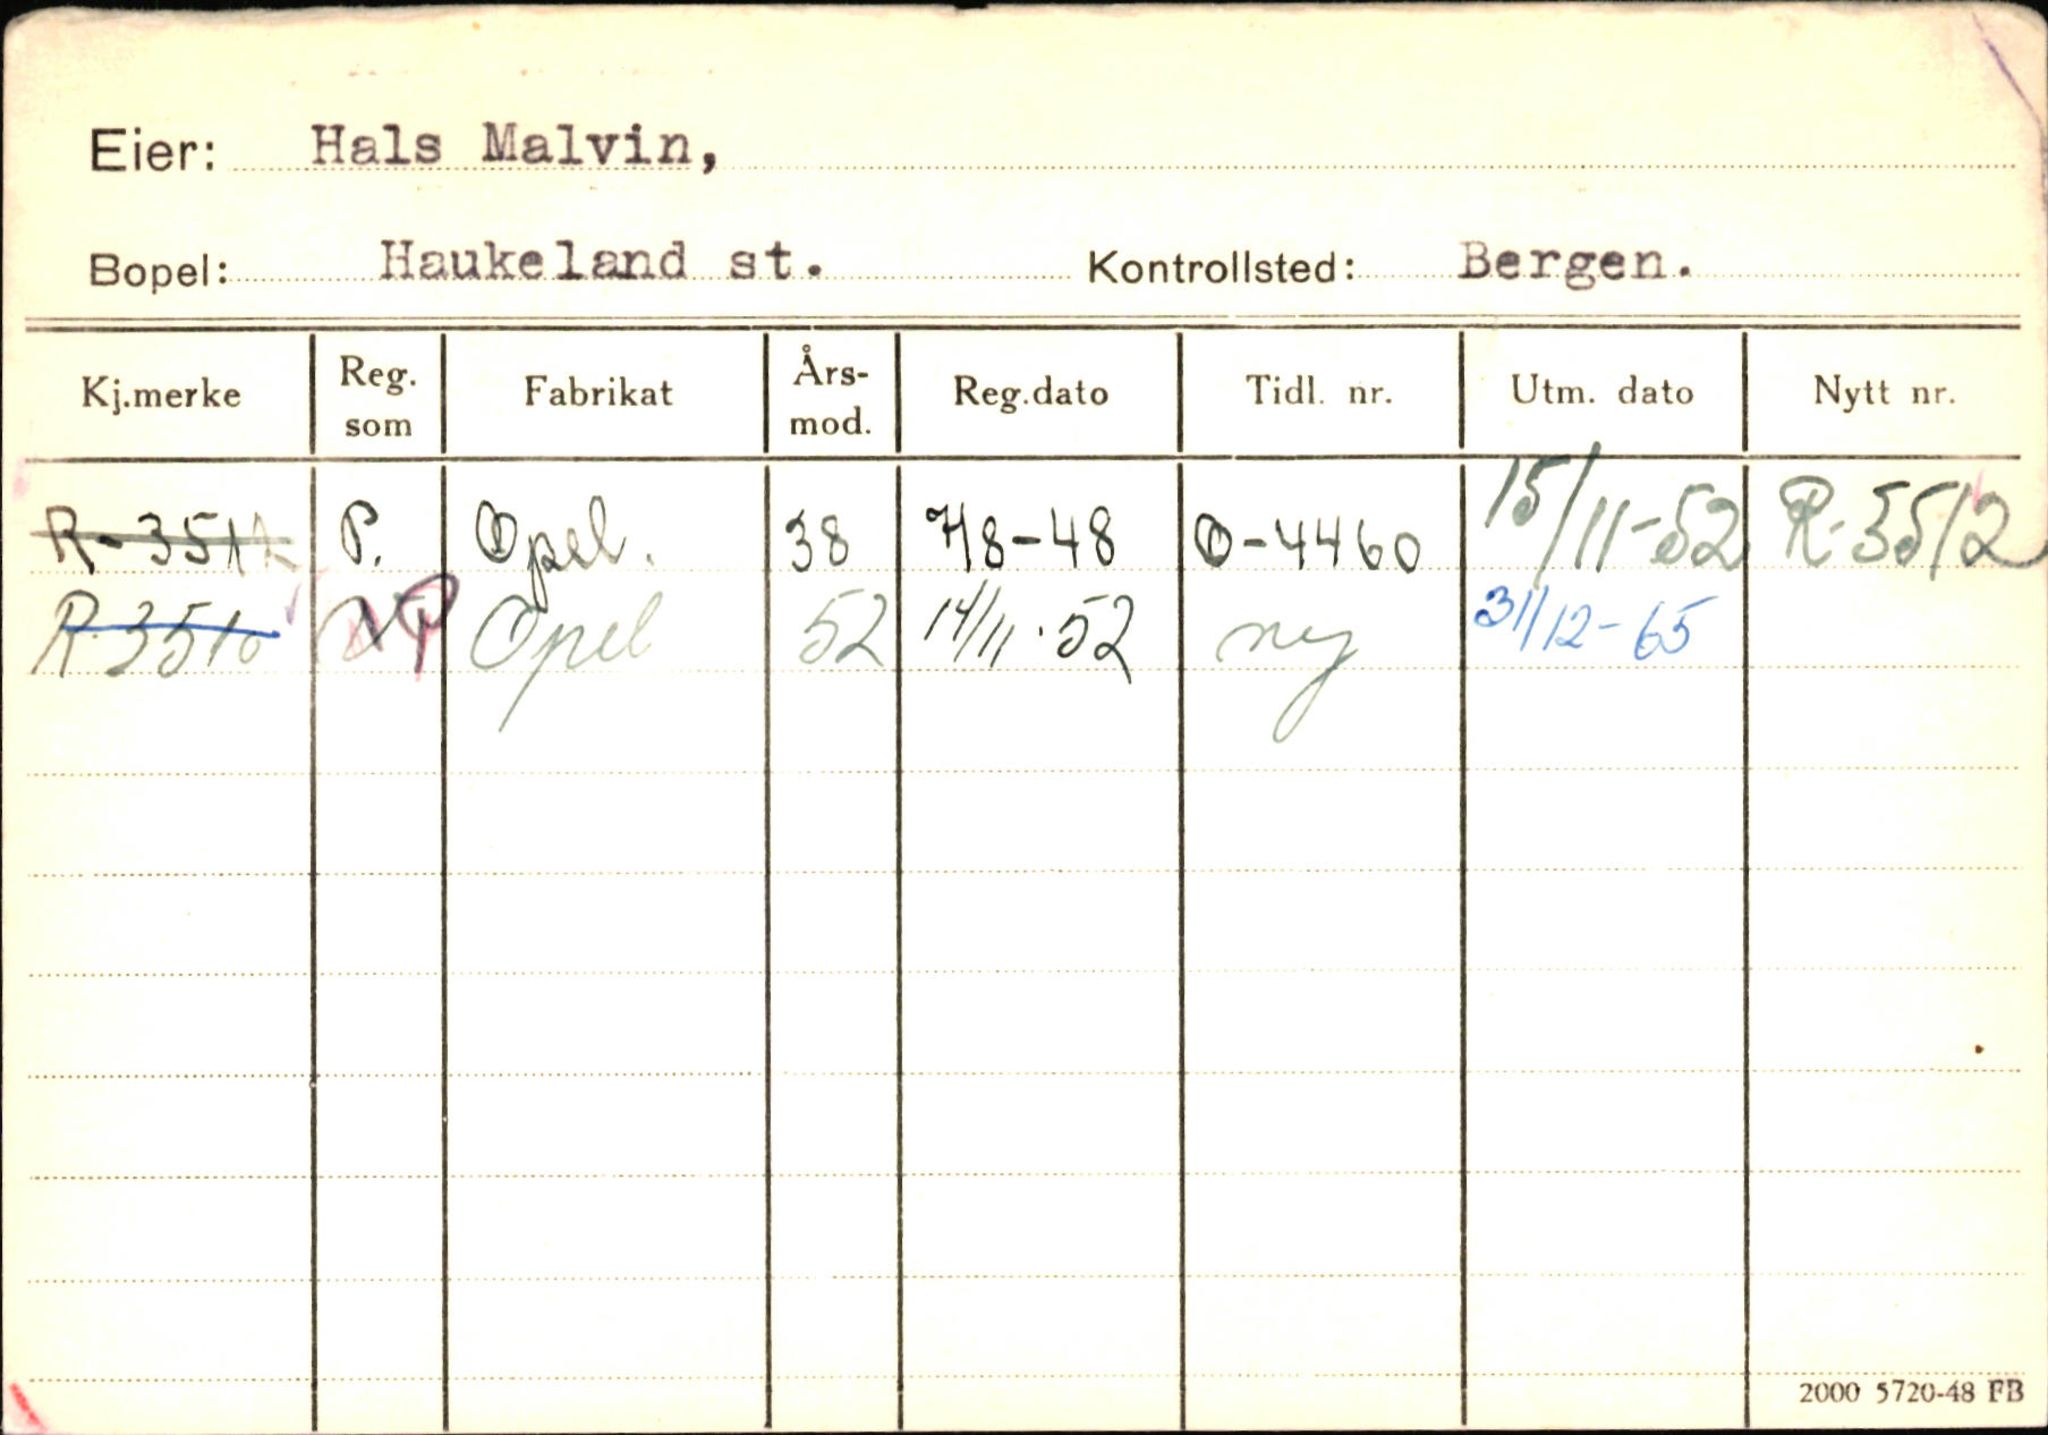 Eier: Hals Malvin,
Bopel: Haukeland st. Kontrollsted: Bergen.
Kj.merke Reg. som Fabrikat Års-mod. Reg.dato Tidl. nr. Utm. dato Nytt nr.
P. Opel. 38 7/8-48 O-4460 15/11-52 R-3512
R-3510 Opel 52 14/11-52 ny 31/12-65
2000 5720-48 FB